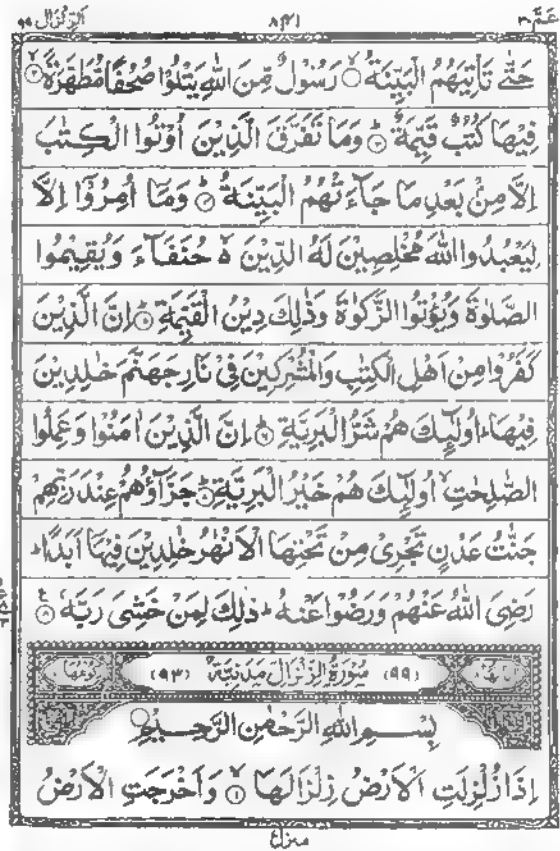 عَمَّ ٣٠ ٨٤١ اَلزِّلْزَال ٩٩
حَتّٰى تَاْتِيَهُمُ الْبَيِّنَةُ ۙ﴿۱﴾ رَسُوْلٌ مِّنَ اللّٰهِ يَتْلُوْا صُحُفًا مُّطَهَّرَةً ۙ﴿۲﴾
فِيْهَا كُتُبٌ قَيِّمَةٌ ؕ﴿۳﴾ وَمَا تَفَرَّقَ الَّذِيْنَ اُوْتُوا الْكِتٰبَ
اِلَّا مِنْۢ بَعْدِ مَا جَآءَتْهُمُ الْبَيِّنَةُ ؕ﴿۴﴾ وَمَاۤ اُمِرُوْۤا اِلَّا
لِيَعْبُدُوا اللّٰهَ مُخْلِصِيْنَ لَهُ الدِّيْنَ ۙ۬ حُنَفَآءَ وَيُقِيْمُوا
الصَّلٰوةَ وَيُؤْتُوا الزَّكٰوةَ وَذٰلِكَ دِيْنُ الْقَيِّمَةِ ؕ﴿۵﴾ اِنَّ الَّذِيْنَ
كَفَرُوْا مِنْ اَهْلِ الْكِتٰبِ وَالْمُشْرِكِيْنَ فِيْ نَارِ جَهَنَّمَ خٰلِدِيْنَ
فِيْهَا ؕ اُولٰٓئِكَ هُمْ شَرُّ الْبَرِيَّةِ ؕ﴿۶﴾ اِنَّ الَّذِيْنَ اٰمَنُوْا وَعَمِلُوا
الصّٰلِحٰتِ ۙ اُولٰٓئِكَ هُمْ خَيْرُ الْبَرِيَّةِ ؕ﴿۷﴾ جَزَآؤُهُمْ عِنْدَ رَبِّهِمْ
جَنّٰتُ عَدْنٍ تَجْرِيْ مِنْ تَحْتِهَا الْاَنْهٰرُ خٰلِدِيْنَ فِيْهَاۤ اَبَدًا ؕ
رَضِيَ اللّٰهُ عَنْهُمْ وَرَضُوْا عَنْهُ ؕ ذٰلِكَ لِمَنْ خَشِيَ رَبَّهٗ ﴿۸﴾
(٩٩) سُوْرَةُ الزِّلْزَالِ مَدَنِيَّةٌ (٩٣)
بِسْمِ اللّٰهِ الرَّحْمٰنِ الرَّحِيْمِ
اِذَا زُلْزِلَتِ الْاَرْضُ زِلْزَالَهَا ۙ﴿۱﴾ وَاَخْرَجَتِ الْاَرْضُ